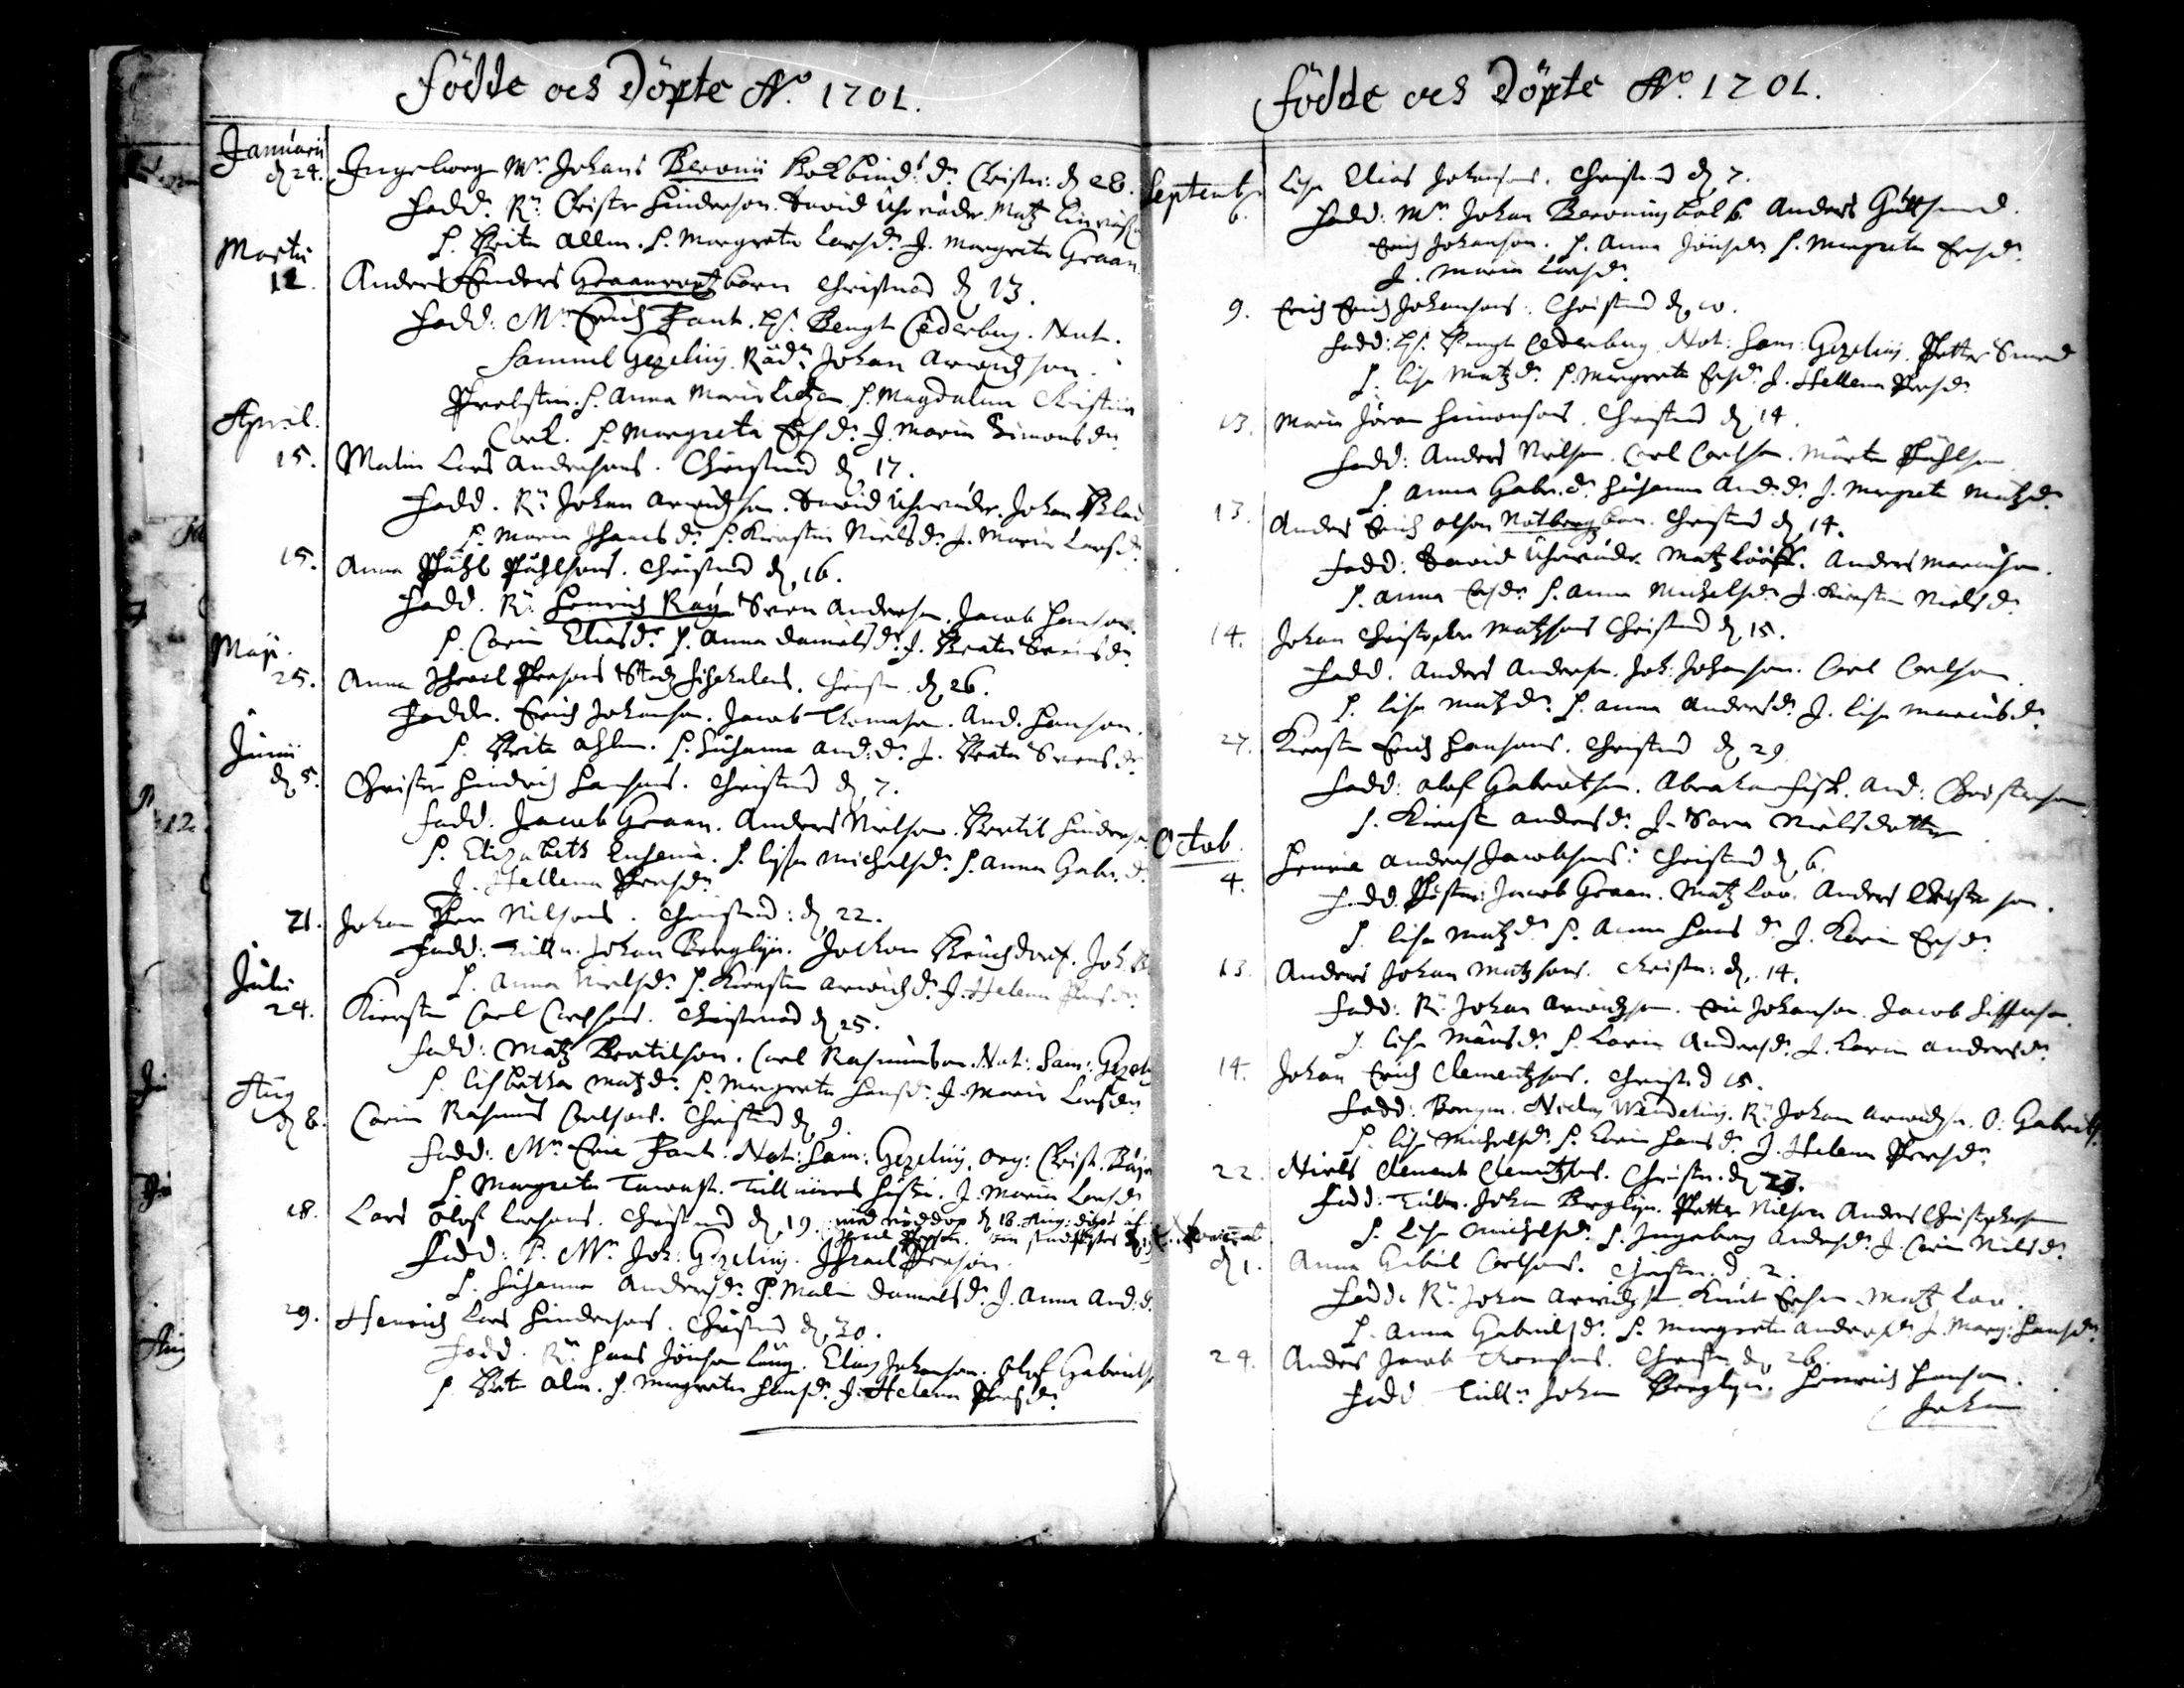 Födde och Döpte Ao. 1701.
Januarii
d 24. Ingeborg Mr. Johans Beronii Bokbind: dr. Christn: d 28.
Fadd. Rn: Christer Hinderson. David Uhrmakr. Matz
H. Brita Allm. H. Margreta Larsdr. J. Margreta Graan
Martii
12. Anders Anders barn Christnad d 13.
Fadd: Mr. Erich Fant. Hr. Bengt Cederberg. Not.
Samuel Gezelius. Rådm Johan Arwidzson.
H. Anna Maria H. Magdalena Christina
H. Margreta Ersdr. J. Maria Simonsdr
April.
15. Malin Lars Andersons. Christnad d 17.
Fadd. Rn Johan Arwidzson. David Uhrmakr. Johan
H. Maria dr. H. Kirstin Nielsdr. J. Maria Larsdr.
15. Anna Påhl Påhlsons. Christnad d 16.
Fadd. Rn. Henrich Swen Anderson. Jacob Hanson.
H. Carin Eliasdr. H. Anna Danielsdr. J. Beata Swensdr.
Maji.
25. Anna Israel Persons Stadz Fiskalens. Christn. d 26.
Faddr. Erich Johanson. Jacob Thomason. And. Hanson.
H. Brita Ahlm. H. Susanna And:dr. J. Beata Swensdr
Junii
d 5. Christer Hindrich Hansons. Christnad d 7.
Fadd: Jacob Graan. Anders Nielson. Bertil Hinderson
H. Elizabeth H. Lisa Michelsdr. H. Anna Gabr. d.
J. Hellena Persdr.
21. Johan Per Nilsons. Christnad: d 22.
Fadd: Tulln. Johan Berglijn. Jochom Joh.
H. Anna Nielsdr. H. Kirstin Arwidzdr. J. Helena Persdr
Julii
24. Kirstin Carl Carlsons. Christnad d 25.
Fadd: Matz Bertilson. Carl Rasmuson. Not: Sam: Gezelius
H. Lisbetha Matzdr. H. Margreta Hansdr. J. Maria Larsdr
Aug
d 8. Carin Rasmus Carlsons. Christnad d 9.
Fadd: Mr Eric Fant. Not: Sam: Gezelius. Org: Christ.
H. Margreta Tullnärens Hustru. J. Maria Larsdr
18. Lars Olof Larsons. Christnad d 19. med nöddop d 18. Aug: döpt af
Israel Person.
Fadd: Mr. Joh: Gezelius. Israel Person.
H. Susanna Andersdr. H. Malin Danielsdr. J. Anna And:d.
29. Henrich Lars Hindersons. Christnad d 30.
Fadd. Rn Hans Jönson Elias Johanson. Olof Gabrielson
H. Brita Alm. H. Margreta Hansdr. J. Helena Persdr.
Födde och Döpte Ao. 1701.
Septembr
6. Lisa Elias Johansons. Christnad d 7.
Fadd: Mr. Johan Beronius Bokb. Anders
Erich Johanson. H. Anna Jönsdr H. Margreta Ersdr.
J. Maria Larsdr.
9. Erich Erich Johansons. Christnad d 10.
Fadd: Hr. Bengt Cederberg. Not: Sam: Gezelius. Petter Smed
H. Lisa Matzdr. H. Margreta Ersdr. J. Hellena Persdr
13. Maria Jöran Simonsons. Christnad d 14.
Fadd: Anders Nielson. Carl Carlson. Mårten Påhlson
H. Anna Gabr. dr. Susanna And:dr. J. Margreta Matzdr.
13. Anders Erich Olson Nötbergz barn. Christnad d 14.
Fadd: David Uhrmakr. Matz Lööff. Anders Marcuson.
H. Anna Ersdr. H. Anna Michelsdr. J. Kirstin Nielsdr.
14. Johan Christopher Matzsons Christnad d 15.
Fadd. Anders Anderson. Joh: Johanson. Carl Carlson.
H. Lisa Matzdr. H. Anna Andersdr. J. Lisa Marcusdr.
27. Kirstin Erich Hansons. Christnad d 29.
Fadd: Olof Gabrielson. Abraham Fisk. And: Christerson
H. Kirstin Andersdr. J. Sara Nielsdotter
Octob.
4. Henric Anders Jacobsons. Christnad d 6.
Fadd: Jacob Graan. Matz Loo. Anders Christerson.
H. Lisa Matzdr. H. Anna Hansdr. J. Karin Ersdr.
13. Anders Johan Matzsons. Christn: d. 14.
Fadd: Rn. Johan Arwidzson. Eric Johanson. Jacob
H. Lisa Månsdr. H. Karin Andersdr. J. Karin Andersdr.
14. Johan Erich Clementzsons. Christnd 15.
Fadd: Borgm. Niclas Wendelius. Rn: Johan Arwidzson. O: Gabriels.
H. Lisa Michelsdr. H. Karin Hansdr. J. Helena Persdr
22. Niels Clemet Clemetzsons. Christn. d 23.
Fadd: Tulln. Johan Berglijn. Petter Nilson Anders Christopherson
H. Lisa Michelsdr. H. Ingeborg Andersdr. J. Carin Nilsdr.
Novemb
d 1. Anna Gabriel Carlsons. Christn. d. 2.
Fadd: Rn. Johan Arwidzson. Knut Erson. Matz Loo.
H. Anna Gabrielsdr. H. Margreta Andersdr J. Marg: Hansdr.
24. Anders Jacob Thomsons. Christn. d 26.
Fadd Tulln: Johan Berglijn. Henrich Hanson.
Johan